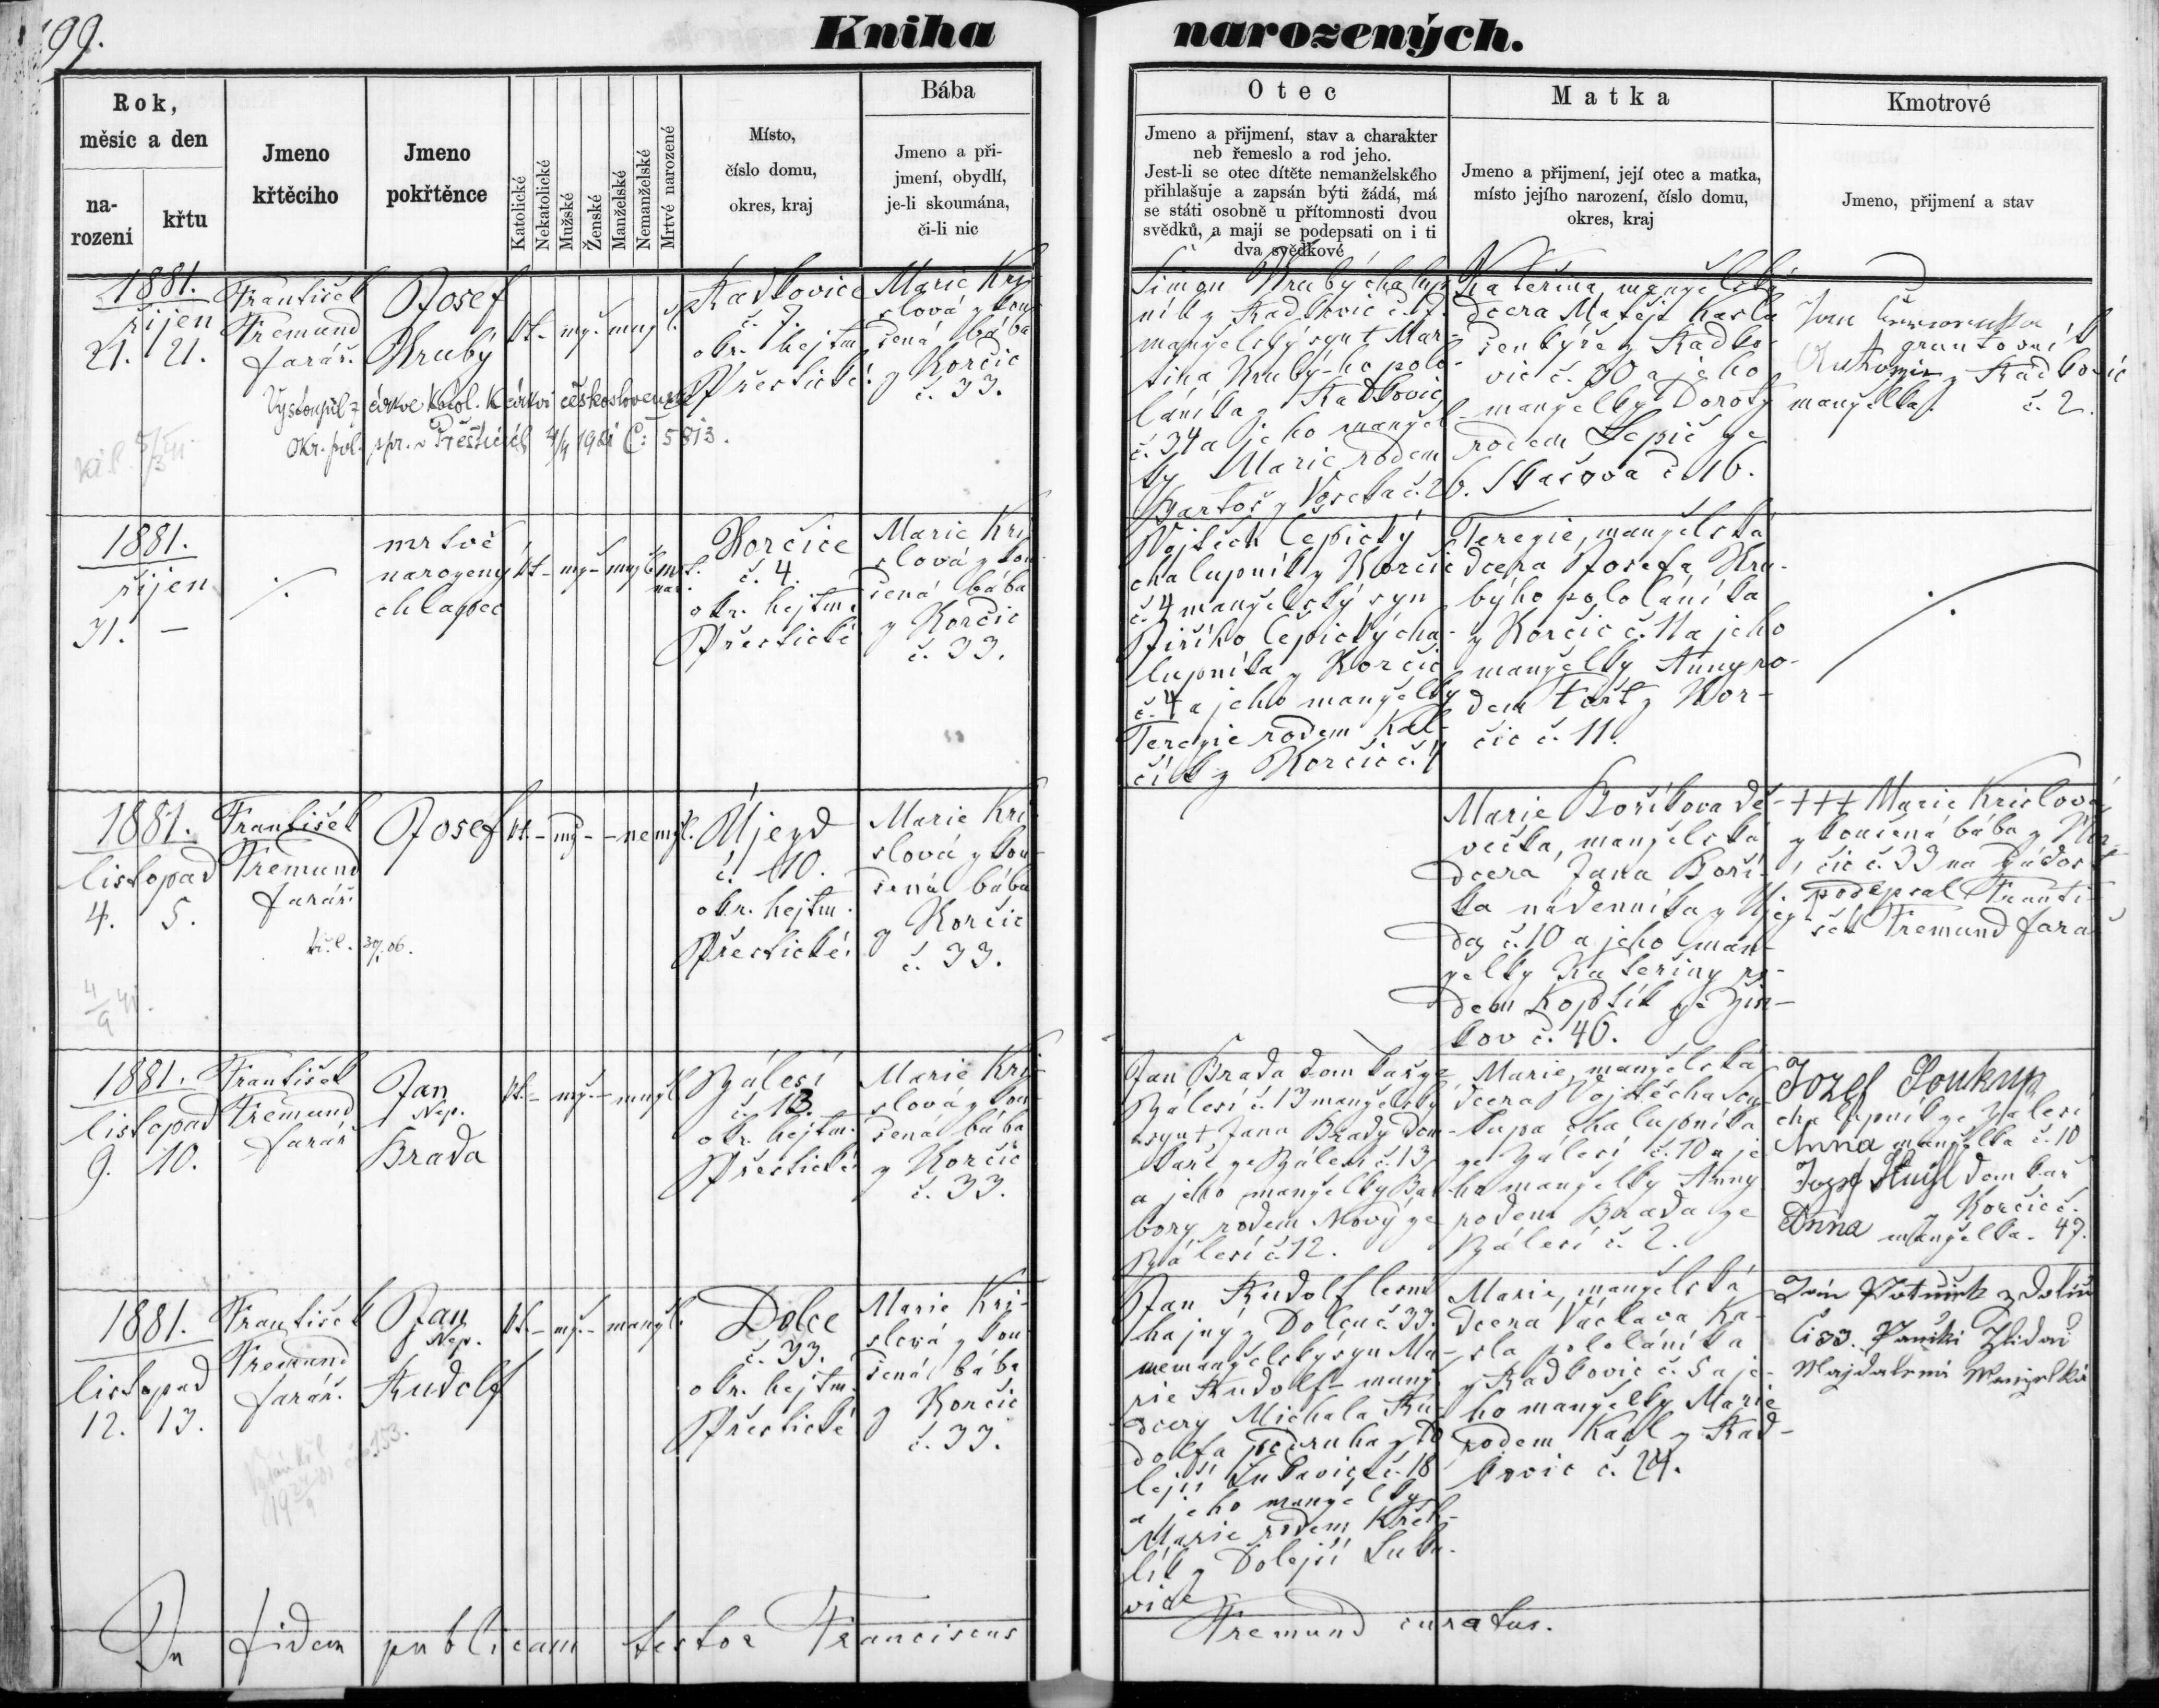 199.
Kniha narozených.
Rok,
měsíc a den
na-
rození
křtu
Jmeno
křtěcího
Jmeno
pokřtěnce
Katolické
Nekatolické
Mužské
Ženské
Manželské
Nemanželské
Mrtvé narozené
Místo,
číslo domu,
okres, kraj
Bába
Jmeno a při-
jmení, obydlí,
je-li skoumána,
či-li nic
Otec
Jmeno a přijmení, stav a charakter
neb řemeslo a rod jeho.
Jest-li se otec dítěte nemanželského
přihlašuje a zapsán býti žádá, má
se státi osobně u přítomnosti dvou
svědků, a mají se podepsati on i ti
dva svědkové
Matka
Jmeno a přijmení, její otec a matka,
místo jejího narození, číslo domu,
okres, kraj
Kmotrové
Jmeno, přijmení a stav
1881.
říjen
21. 21.
František
Tremund
farář.
Josef
Hrubý
kt. mž. mnžl.
Radkovice
č. 7.
okr. hejtm.
Přestické.
Marie Kri-
slová zkou-
šená bába
z Horčic
č. 33.
Vystoupil z církve katol. k církvi československé
Okr. pol. spr. v Přešticích 4/4 1921 Č: 5813.
Šimon Hrubý chalup-
ník z Radkovic č. 7.
manželský syn † Mar-
tina Hrubý-ho polo-
láníka z Radkovic
č. 34 a jeho manžel-
ky Marie rodem
Bartoš z Vosek č. 26.
Kateřina, manželská
dcera Matěje Kasla
šenkýře z Radko-
vic č. 30 a jeho
manželky Doroty
rodem Sepič ze
Skašova č. 16.
Jan
gruntovník
z Radkovic
manželka. č. 2.
1881.
říjen
31. –
mrtvě
narozený
chlapec
kt. – mž. – mnžl. mrt.
nar.
Horčice
č. 4.
okr. hejtm.
Přestické
Marie Kri-
slová zkou-
šená bába
z Horčic
č. 33.
Vojtěch Čepický
chalupník z Horčic
č. 4 manželský syn
Jiřího Čepický cha-
lupníka z Horčic
č. 4 a jeho manželky
Terezie rodem Kal-
čík z Horčic č. 1
Terezie, manželská
dcera Josefa Hru-
býho pololáníka
z Horčic č. 11 a jeho
manželky Anny ro-
dem Tošt z Hor-
čic č. 11.
1881.
listopad
4. 5.
František
Tremund
farář.
Josef
kt. – mž. – – nemžl.
Újezd
č. 10.
okr. hejtm.
Přestické.
Marie Kri-
slová zkou-
šená bába
z Horčic
č. 33.
Marie Boříkova dě-
večka, manželská
dcera Jana Boří-
ka nádenníka z Újez-
da č. 10 a jeho man-
želky Kateřiny ro-
dem Koptík ze Žin-
kov č. 46.
+++ Marie Krislová
zkoušená bába z Hor-
čic č. 33 na žádost
podepsal Franti-
šek Tremund farář
1881.
listopad
9. 10.
František
Tremund
farář
Jan
Nep.
Brada
kt. – mž. – mnžl.
Zálesí
č. 13
okr. hejtm.
Přestické
Marie Kri-
slová zkou-
šená bába
z Horčic
č. 33.
Jan Brada domkař ze
Zálesí č. 13 manželský
syn † Jana Brady dom-
kaře ze Zálesí č. 13
a jeho manželky Bar-
bory rodem Nový ze
Zálesí č. 12.
Marie, manželská
dcera Vojtěcha Sou-
kupa chalupníka
ze Zálesí č. 10 a je-
ho manželky Anny
rodem Brada ze
Zálesí č. 2.
Jozef Soukup
chalupník ze Zálesí
Anna manželka č. 10
Jozef domkař
z Horčic č.
Anna manželka. 47.
1881.
listopad
12. 13.
František
Tremund
farář.
Jan
Nep.
Rudolf
kt. – mž. – manžl.
Dolce
č. 33.
okr. hejtm.
Přestické
Marie Kri-
slová zkou-
šená bába
z Horčic
č. 33.
Jan Rudolf lesní
hajný z Dolců č. 33.
nemanželský syn Ma-
rie Rudolf – manž.
dcery Michala Ru-
dolfa z Do-
lejší Lukavice č. 18
a jeho manželky
Marie rodem Křeh-
lík z Dolejší Luka-
vice
Marie, manželská
dcera Václava Ka-
sla pololáníka
z Radkovic č. 5 a je-
ho manželky Marie
rodem Kasl z Rad-
kovic č. 24.
Jan
č 33.
Majdalena Manzelka
In fidem publicam testor Franciscus
Tremund curatus.